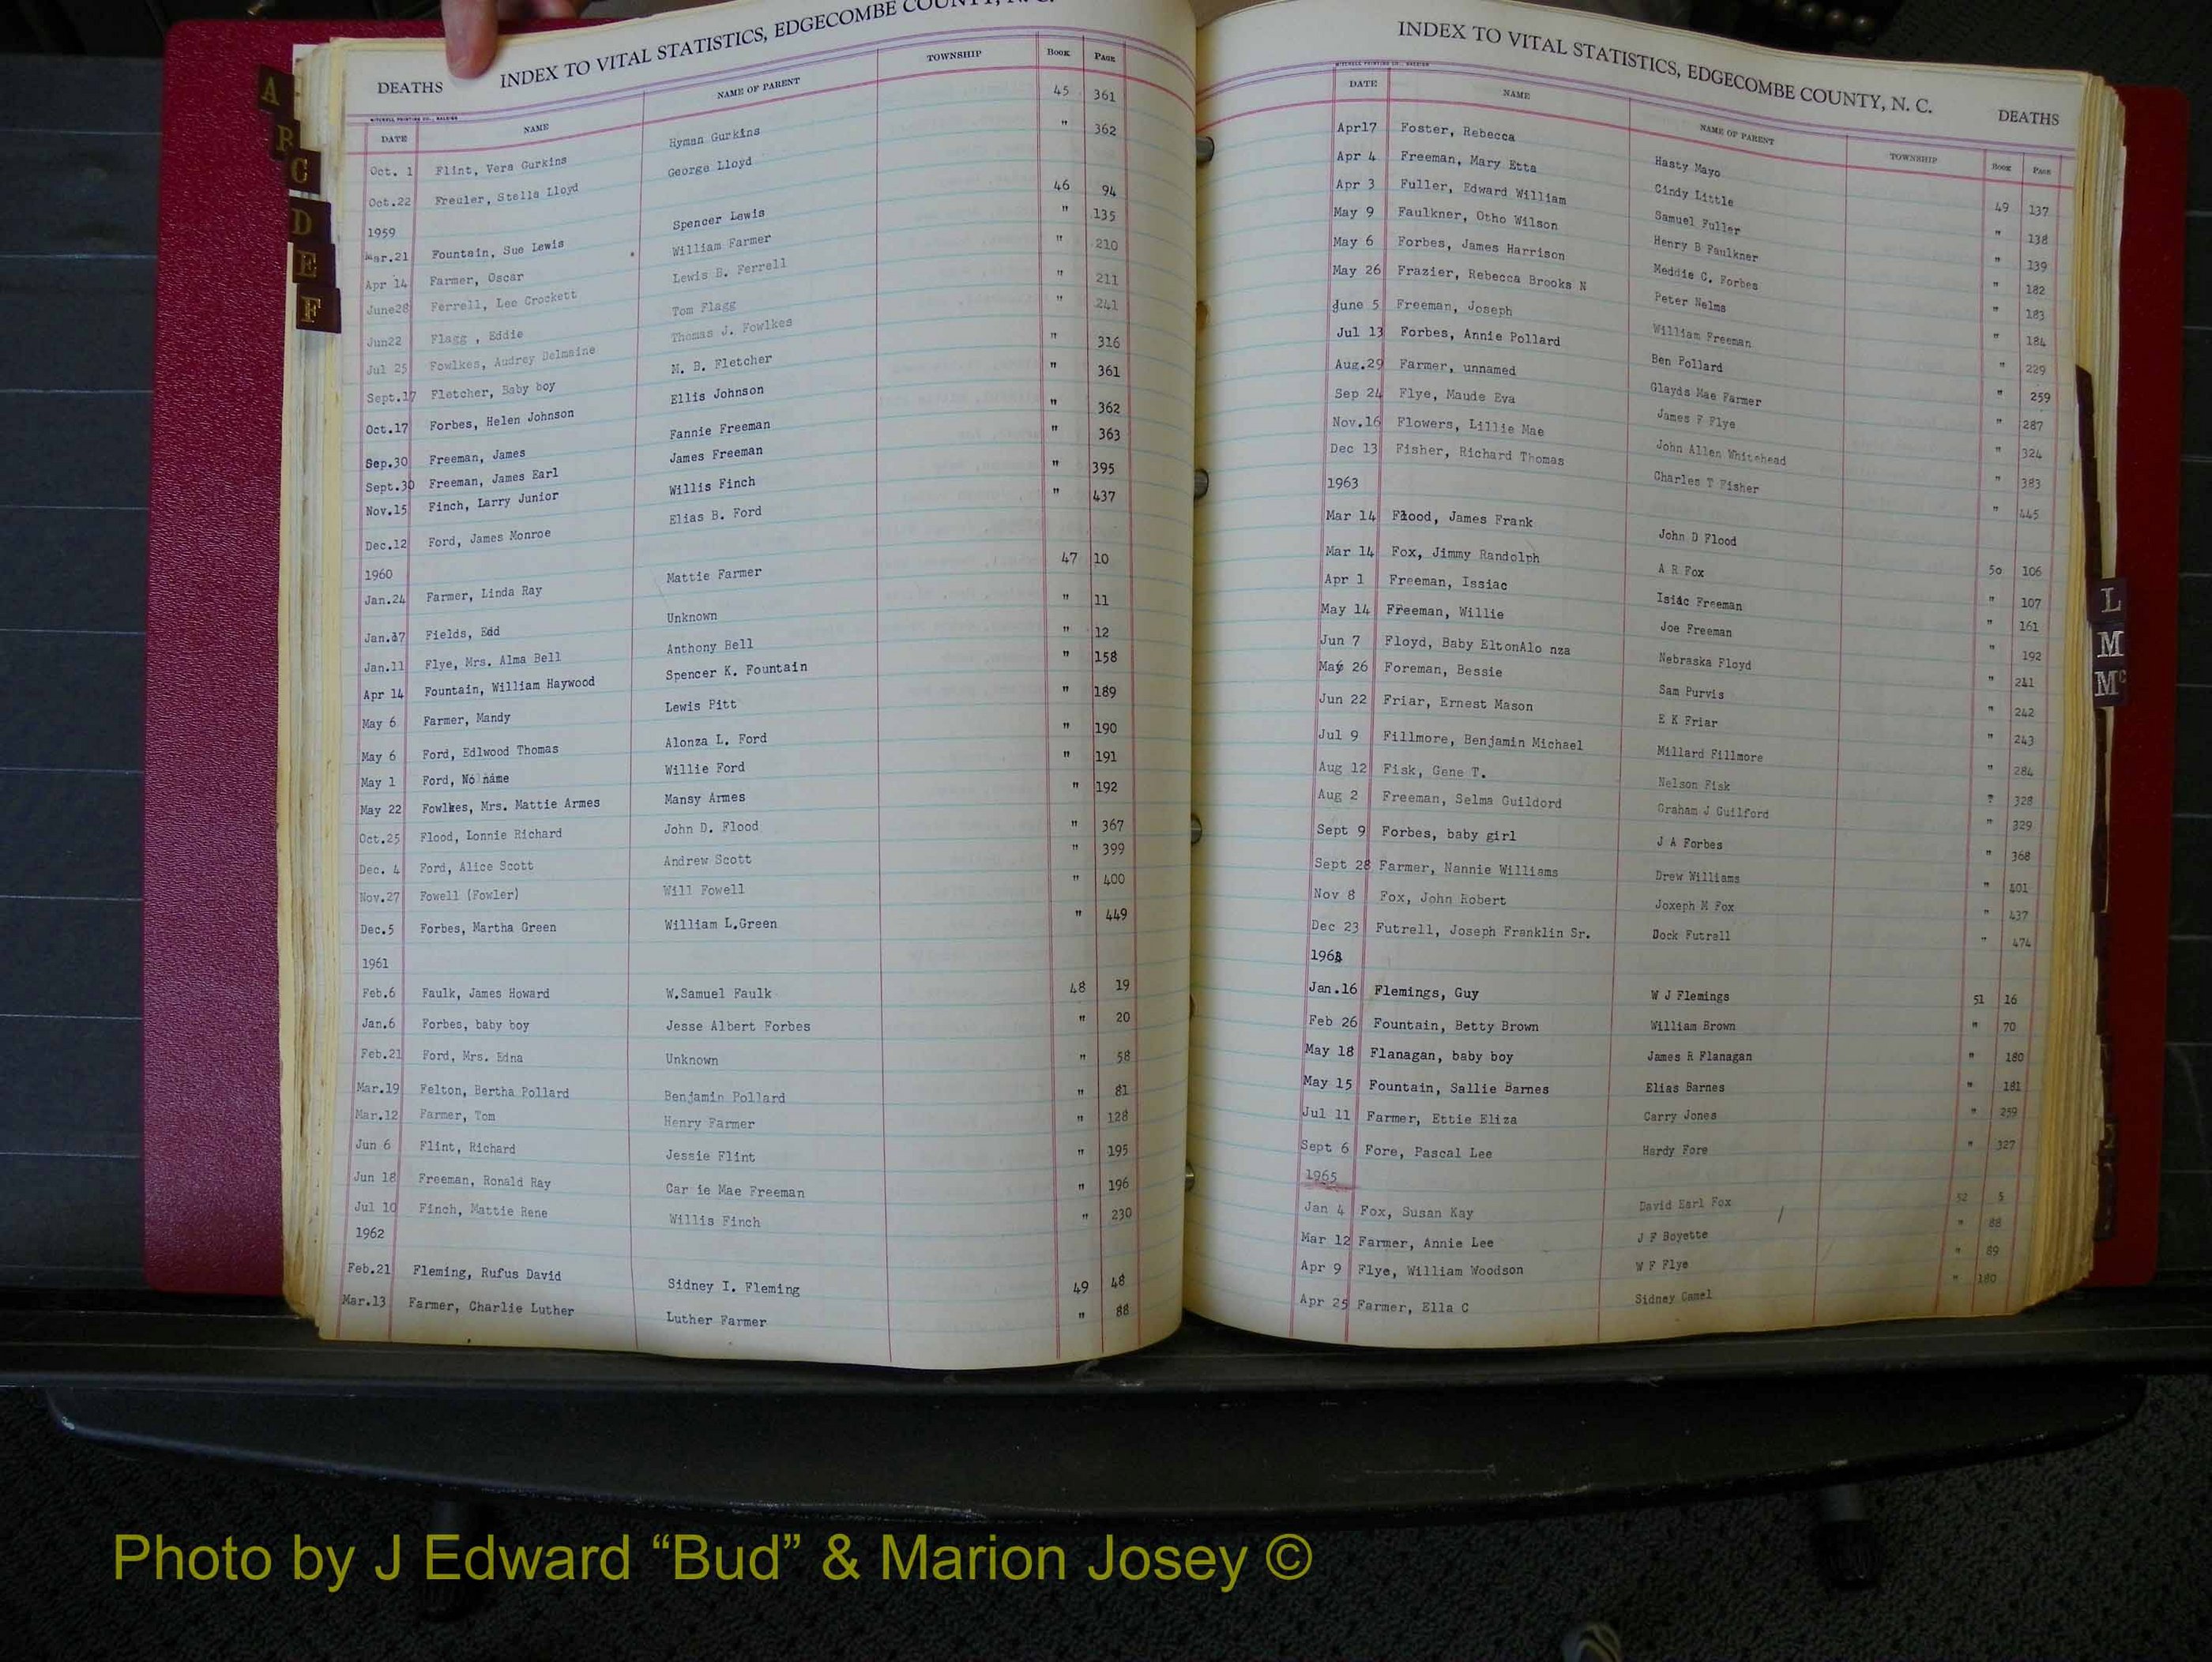 DEATHS INDEX TO VITAL STATISTICS, EDGECOMBE COUNTY, N. C.
MITCHELL PRINTING CO., RALEIGH
DATE NAME NAME OF PARENT TOWNSHIP BOOK PAGE
Oct. 1 Flint, Vera Gurkins Hyman Gurkins 45 361
Oct.22 Freuler, Stella Lloyd George Lloyd " 362
1959
Mar.21 Fountain, Sue Lewis Spencer Lewis 46 94
Apr 14 Farmer, Oscar William Farmer " 135
June28 Ferrell, Lee Crockett Lewis B. Ferrell " 210
Jun22 Flagg , Eddie Tom Flagg " 211
Jul 25 Fowlkes, Audrey Delmaine Thomas J. Fowlkes " 241
Sept.17 Fletcher, Baby boy M. B. Fletcher " 316
Oct.17 Forbes, Helen Johnson Ellis Johnson " 361
Sep.30 Freeman, James Fannie Freeman " 362
Sept.30 Freeman, James Earl James Freeman " 363
Nov.15 Finch, Larry Junior Willis Finch " 395
Dec.12 Ford, James Monroe Elias B. Ford " 437
1960
Jan.24 Farmer, Linda Ray Mattie Farmer 47 10
Fields, Edd Unknown " 11
Jan.11 Flye, Mrs. Alma Bell Anthony Bell " 12
Apr 14 Fountain, William Haywood Spencer K. Fountain " 158
May 6 Farmer, Mandy Lewis Pitt " 189
May 6 Ford, Edlwood Thomas Alonza L. Ford " 190
May 1 Ford, No name Willie Ford " 191
May 22 Fowlkes, Mrs. Mattie Armes Mansy Armes " 192
Oct.25 Flood, Lonnie Richard John D. Flood " 367
Dec. 4 Ford, Alice Scott Andrew Scott " 399
Nov.27 Fowell (Fowler) Will Fowell " 400
Dec.5 Forbes, Martha Green William L.Green " 449
1961
Feb.6 Faulk, James Howard W.Samuel Faulk 48 19
Jan.6 Forbes, baby boy Jesse Albert Forbes " 20
Feb.21 Ford, Mrs. Edna Unknown " 58
Mar.19 Felton, Bertha Pollard Benjamin Pollard " 81
Mar.12 Farmer, Tom Henry Farmer " 128
Jun 6 Flint, Richard Jessie Flint " 195
Jun 18 Freeman, Ronald Ray Car ie Mae Freeman " 196
Jul 10 Finch, Mattie Rene Willis Finch " 230
1962
Feb.21 Fleming, Rufus David Sidney I. Fleming 49 48
Mar.13 Farmer, Charlie Luther Luther Farmer " 88
INDEX TO VITAL STATISTICS, EDGECOMBE COUNTY, N. C. DEATHS
MITCHELL PRINTING CO., RALEIGH
DATE NAME NAME OF PARENT TOWNSHIP BOOK PAGE
Apr17 Foster, Rebecca Hasty Mayo 49 137
Apr 4 Freeman, Mary Etta Cindy Little " 138
Apr 3 Fuller, Edward William Samuel Fuller " 139
May 9 Faulkner, Otho Wilson Henry B Faulkner " 182
May 6 Forbes, James Harrison Meddie C. Forbes " 183
May 26 Frazier, Rebecca Brooks N Peter Nelms " 184
June 5 Freeman, Joseph William Freeman " 229
Jul 13 Forbes, Annie Pollard Ben Pollard " 259
Aug.29 Farmer, unnamed Glayds Mae Farmer " 287
Sep 24 Flye, Maude Eva James F Flye " 324
Nov.16 Flowers, Lillie Mae John Allen Whitehead " 383
Dec 13 Fisher, Richard Thomas Charles T Fisher " 445
1963
Mar 14 Flood, James Frank John D Flood 50 106
Mar 14 Fox, Jimmy Randolph A R Fox " 107
Apr 1 Freeman, Issiac Isiac Freeman " 161
May 14 Freeman, Willie Joe Freeman " 192
Jun 7 Floyd, Baby EltonAlo nza Nebraska Floyd " 241
May 26 Foreman, Bessie Sam Purvis " 242
Jun 22 Friar, Ernest Mason E K Friar " 243
Jul 9 Fillmore, Benjamin Michael Millard Fillmore " 284
Aug 12 Fisk, Gene T. Nelson Fisk " 328
Aug 2 Freeman, Selma Guildord Graham J Guilford " 329
Sept 9 Forbes, baby girl J A Forbes " 368
Sept 28 Farmer, Nannie Williams Drew Williams " 401
Nov 8 Fox, John Robert Joxeph M Fox " 437
Dec 23 Futrell, Joseph Franklin Sr. Dock Futrell " 474
Jan.16 Flemings, Guy W J Flemings 51 16
Feb 26 Fountain, Betty Brown William Brown " 70
May 18 Flanagan, baby boy James R Flanagan " 180
May 15 Fountain, Sallie Barnes Elias Barnes " 181
Jul 11 Farmer, Ettie Eliza Carry Jones " 259
Sept 6 Fore, Pascal Lee Hardy Fore " 327
1965
Jan 4 Fox, Susan Kay David Earl Fox 52 5
Mar 12 Farmer, Annie Lee J F Boyette " 88
Apr 9 Flye, William Woodson W F Flye " 89
Apr 25 Farmer, Ella C Sidney Camel " 180
A
B
C
D
E
F
L
M
Mc
Photo by J Edward “Bud” & Marion Josey ©